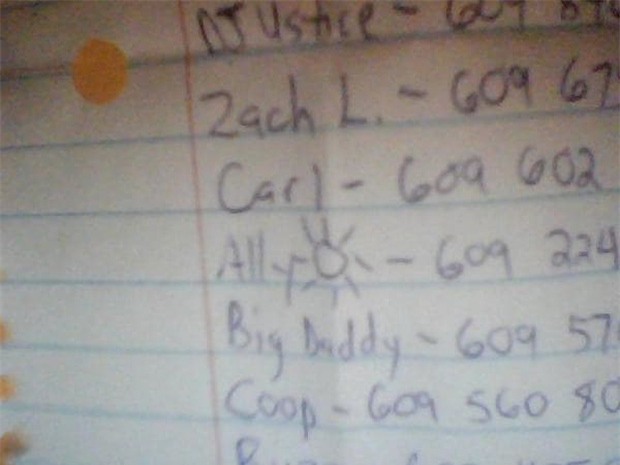 DJ Ustice - 609
Zach L. - 609 67
Carl - 609 602
All - 609 224
Big Daddy - 609 57
Coop - 609 560 80